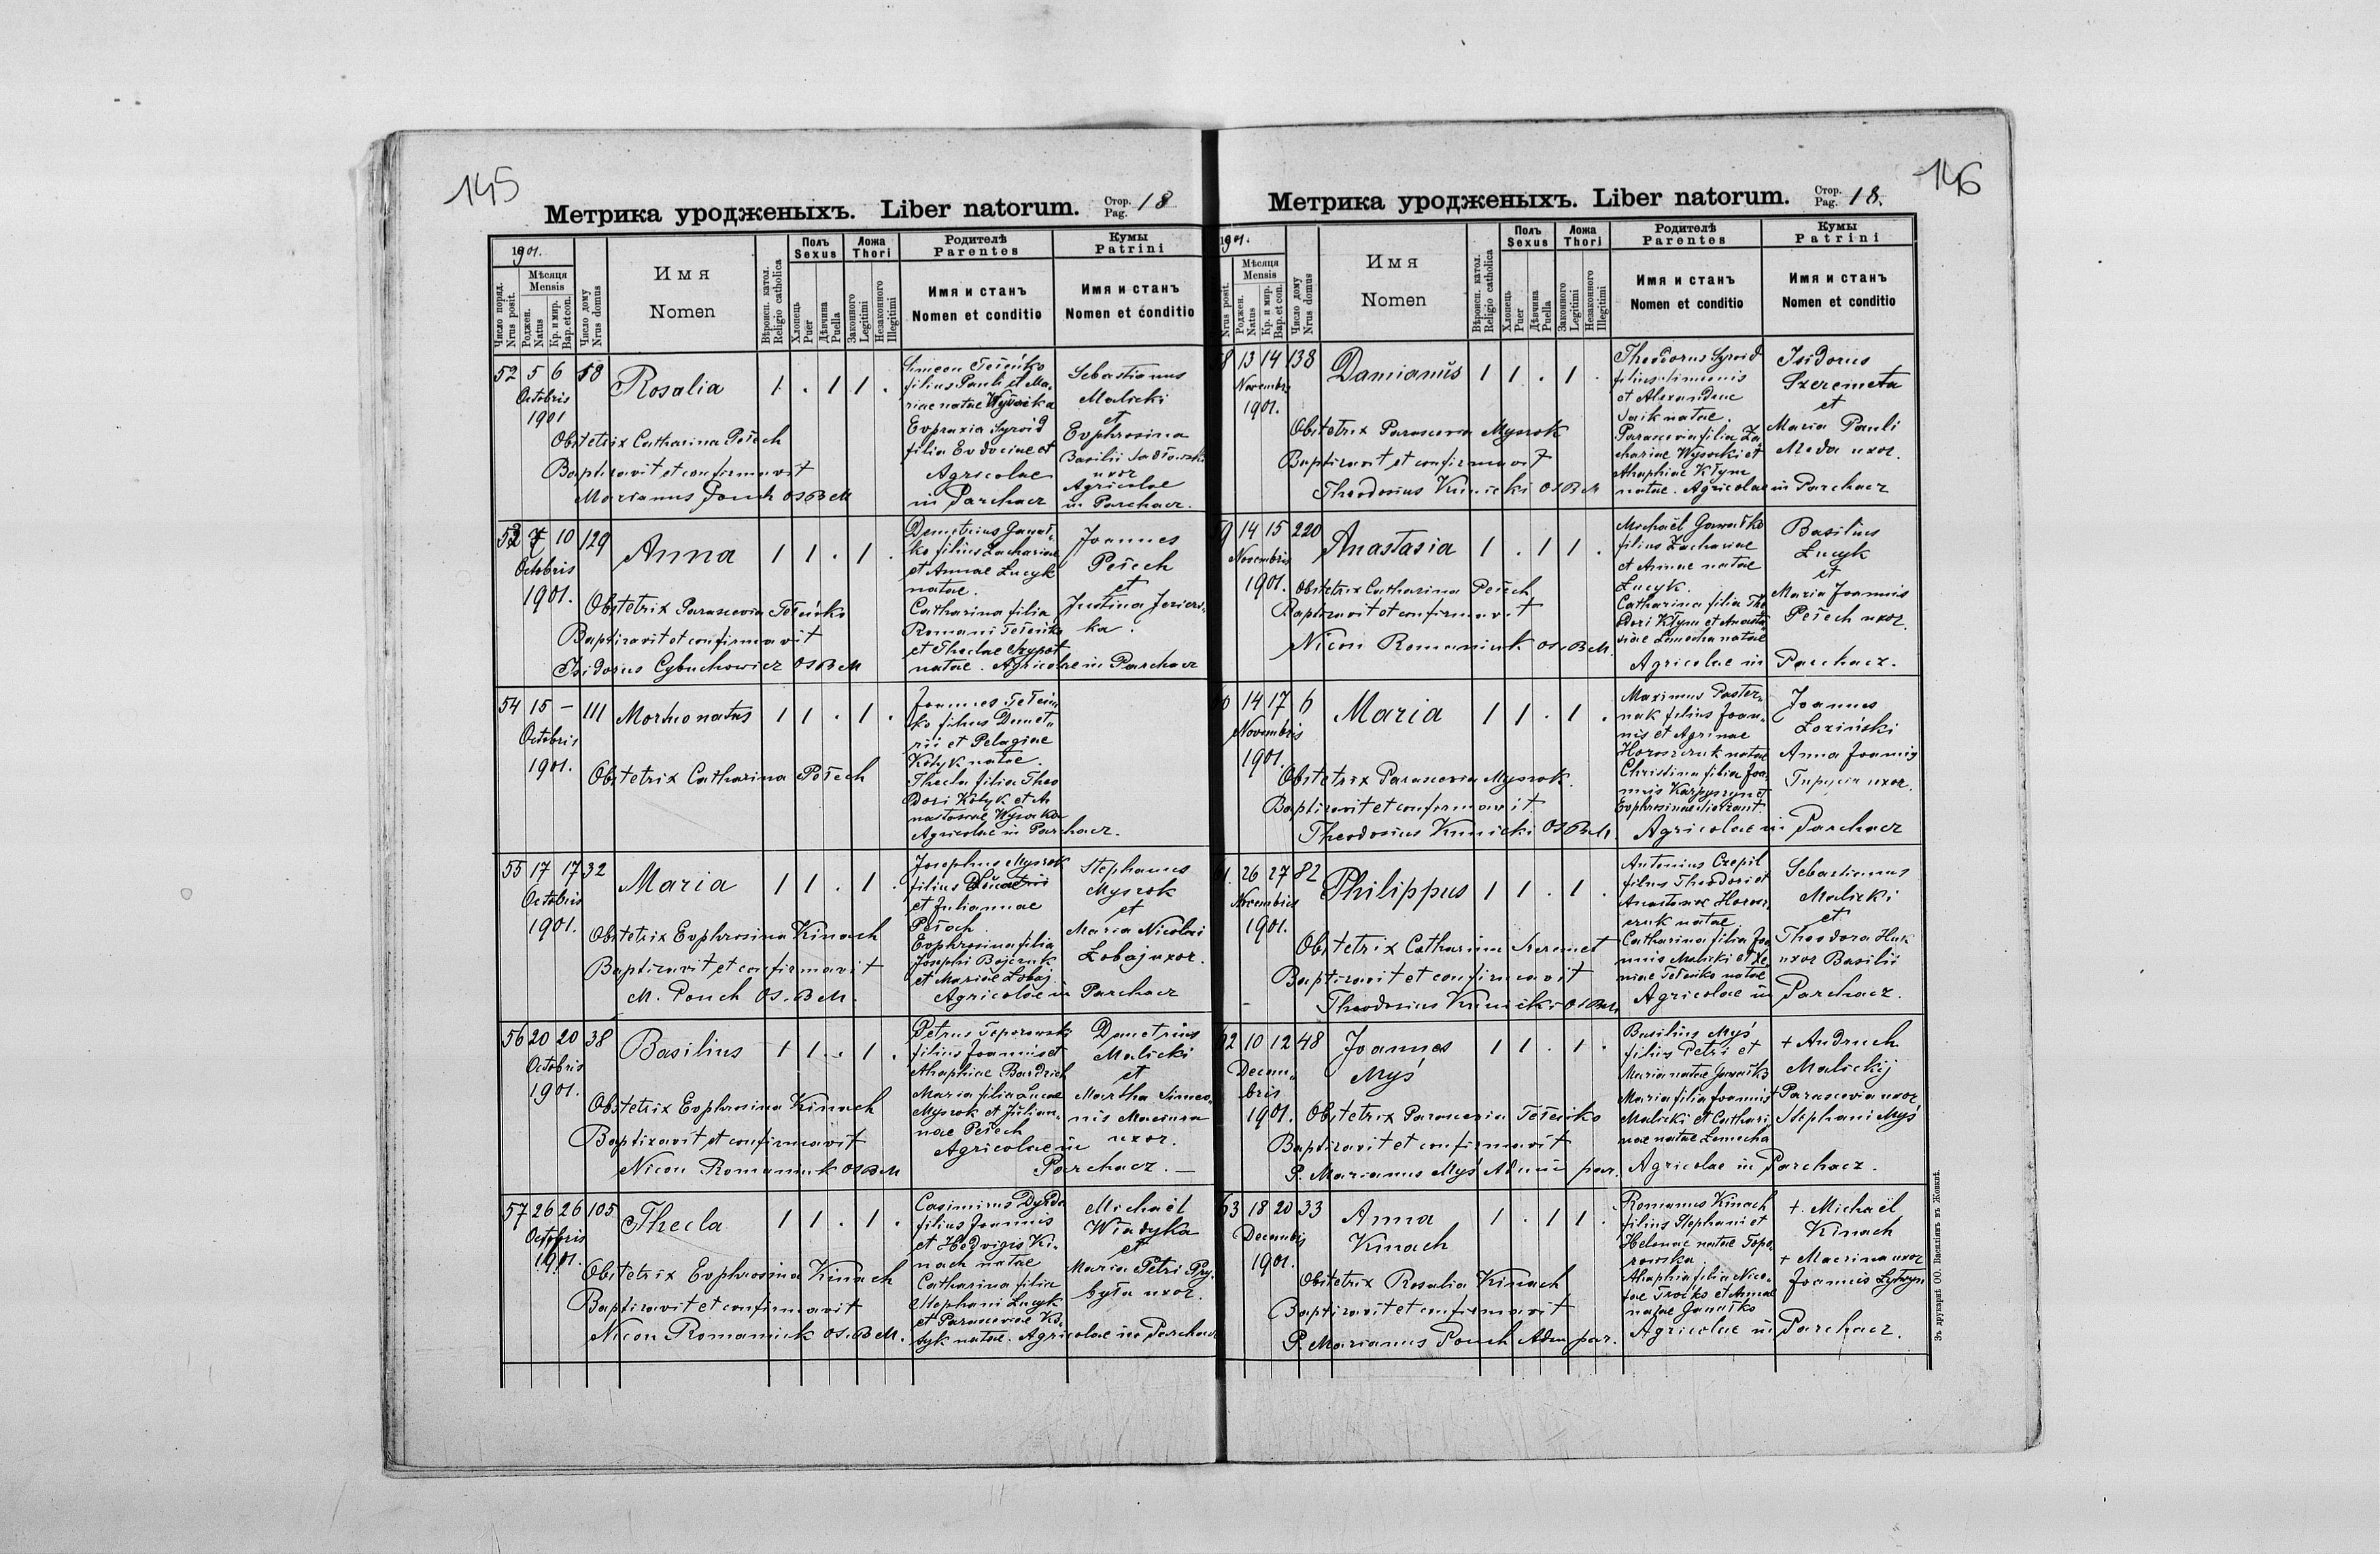 145
Метрика уродженыхъ. Liber natorum.
Стор.
Pag. 18
1901.
Число поряд.
Nrus posit.
Мѣсяця
Mensis
Роджен.
Natus
Кр. и мир.
Bap. et con.
Число дому
Nrus domus
Имя
Nomen
Вѣроисп. катол.
Religio catholica
Полъ
Sexus
Хлопець
Puer
Дѣвчина
Puella
Ложа
Thori
Законного
Legitimi
Незаконного
Illegitimi
Родителѣ
Parentes
Имя и станъ
Nomen et conditio
Кумы
Patrini
Имя и станъ
Nomen et conditio
52 5 6 58 Rosalia 1 . 1 1 .
Octobris
1901
Obstetrix Catharina Pełech
Baptizavit et confirmavit
Marianus Pouch OSBM
Simeon Teleńko
filius Pauli et Ma-
riae natae Wysocka
Evpraxia Syroid
filia Evdociae et
Agricolae
in Parchacz
Sebastianus
Malicki
et
Evphrosina
Basilii
uxor
Agricolae
in Parchacz.
53 7 10 129 Anna 1 1 . 1 .
Octobris
1901.
Obstetrix Parascevia Teleńko
Baptizavit et confirmavit
Isidorus Cybuchowicz OSBM
Demetrius Gawał-
ko filius Zachariae
et Annae Łucyk
natae.
Catharina filia
Romani Teleńko
et Theclae
natae. Agricolae in Parchacz
Joannes
Pełech
et
Justina Jeziers-
ka.
54 15 — 111 Mortuo natus 1 1 . 1 .
Octobris
1901.
Obstetrix Catharina Pełech
Joannes Teleń-
ko filius Demet-
rii et Pelagiae
Kotyk natae.
Thecla filia Theo
dori Kotyk et A
nastasiae Wysocka
Agricolae in Parchacz.
55 17 17 32 Maria 1 1 . 1 .
Octobris
1901.
Obstetrix Evphrosina Kinach
Baptizavit et confirmavit
M. Pouch OS.BM.
Josephus Mysrok
filius
et Juliannae
Pełech
Evphrosina filia
Josephi Bojczuk
et Mariae Łobaj.
Agricolae in Parchacz
Stephanus
Mysrok
et
Maria Nicolai
Łobaj uxor.
56 20 20 38 Basilius 1 1 . 1 .
Octobris
1901.
Obstetrix Evphrosina Kinach
Baptizavit et confirmavit
Nicon Romaniuk OSBM
Petrus Toporowski
filius Joannis et
Ahaphiae
Maria filia Lucae
Mysrok et Julian-
nae Pełech
Agricolae in
Parchacz. —
Demetrius
Malicki
et
Martha Simeo-
nis Maciura
uxor.
57 26 26 105 Thecla 1 1 . 1 .
Octobris
1901.
Obstetrix Evphrosina Kinach
Baptizavit et confirmavit
Nicon Romaniuk OS.BM.
Casimirus Dyrda
filius Joannis
et Hedvigis Ki-
nach natae
Catharina filia
Stephani Łucyk
et Parasceviae Ko-
tyk natae. Agricolae in Parchacz
Michaël
Władyka
et
Maria Petri Pry-
była uxor.
146
Метрика уродженыхъ. Liber natorum.
Стор.
Pag. 18.
1901.
Nrus posit.
Мѣсяця
Mensis
Роджен.
Natus
Кр. и мир.
Bap. et con.
Число дому
Nrus domus
Имя
Nomen
Вѣроисп. катол.
Religio catholica
Полъ
Sexus
Хлопець
Puer
Дѣвчина
Puella
Ложа
Thori
Законного
Legitimi
Незаконного
Illegitimi
Родителѣ
Parentes
Имя и станъ
Nomen et conditio
Кумы
Patrini
Имя и станъ
Nomen et conditio
8 13 14 138 Damianus 1 1 . 1 .
Novembris
1901.
Obstetrix Parascevia Mysrok
Baptizavit et confirmavit
Theodosius Kunicki OSBM
Theodorus Syroid
filius Simeonis
et Alexandrae
Saik natae.
Parascevia filia Za
chariae Wysocki et
Ahaphiae Kłym
natae. Agricolae in Parchacz
Isidorus
Szeremeta
et
Maria Pauli
Meda uxor.
9 14 15 220 Anastasia 1 . 1 1 .
Novembris
1901.
Obstetrix Catharina Pełech
Baptizavit et confirmavit
Nicon Romaniuk OS.BM.
Michaël Gawałko
filius Zachariae
et Annae natae
Łucyk.
Catharina filia Theo
dori Kłym et Anasta
siae Łemecha natae
Agricolae in Parchacz.
Basilius
Łucyk
et
Maria Joannis
Pełech uxor.
0 14 17 6 Maria 1 1 . 1 .
Novembris
1901.
Obstetrix Parascevia Mysrok.
Baptizavit et confirmavit.
Theodosius Kunicki OSBM.
Maximus Paster-
nak filius Joan-
nis et Agrinae
Horoszczuk natae
Christina filia Joa-
nnis et
Evphrosinae
Agricolae in Parchacz
Joannes
Łoziński
Anna Joannis
uxor.
1. 26 27 82 Philippus 1 1 . 1 .
Novembris
1901.
Obstetrix Catharina Szeremet
Baptizavit et confirmavit
Theodosius Kunicki OSBM.
Antonius Czepil
filius Theodori et
Anastasiae Horosz-
czuk natae
Catharina filia Joa
nnis Malicki et Xe-
niae Teleńko natae
Agricolae in Parchacz.
Sebastianus
Malicki
et
Theodora Huk
uxor Basilii
62 10 12 48 Joannes 1 1 . 1 .
Myś
Decem-
bris
1901.
Obstetrix Parascevia Teleńko
Baptizavit et confirmavit
P. Marianus Myś Admin par.
Basilius Myś
filius Petri et
Maria natae Gawałko
Maria filia Joannis
Malicki et Cathari
nae natae Łemecha
Agricolae in Parchacz.
+ Andruch
Malickij
+ Parascevia uxor
Stephani Myś
63 18 20 33 Anna 1 . 1 1 .
Kinach
Decembris
1901.
Obstetrix Rosalia Kinach
Baptizavit et confirmavit
P. Marianus Pouch Adm par.
Romanus Kinach
filius Stephani et
Helenae natae Topo-
rowska.
Ahaphia filia Nico-
lae et Annae
natae Gawałko
Agricolae in Parchacz.
+ Michaël
Kinach
+ Macrina uxor
Joannis Łytwyn
Зъ друкарнѣ ОО. Василіянъ въ Жовквѣ.